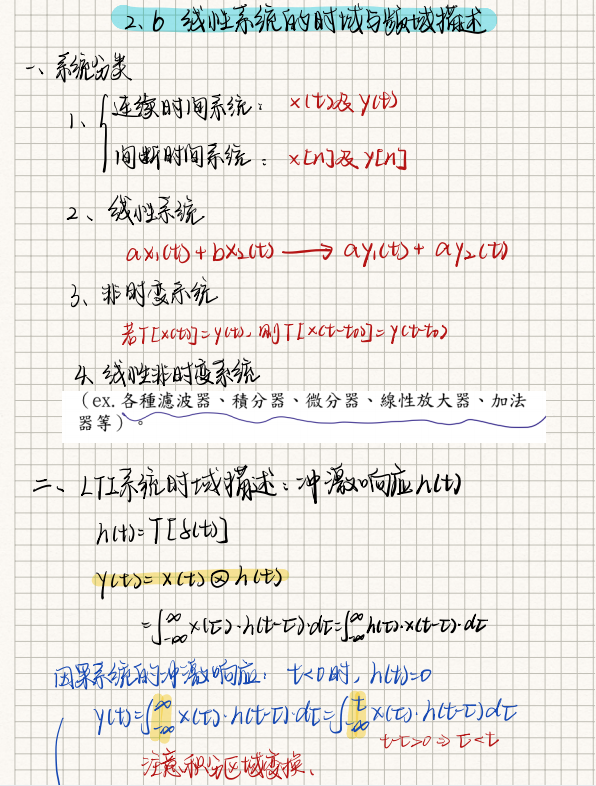 2.6 线性系统的时域与频域描述
一、系统分类
1、{ 连续时间系统： x(t)及y(t)
间断时间系统： x[n]及y[n]
2、线性系统
ax₁(t)+bx₂(t) ⟶ ay₁(t)+ay₂(t)
3、非时变系统
若T[x(t)]=y(t)，则T[x(t-t₀)]=y(t-t₀)
4、线性非时变系统
（ex. 各種濾波器、積分器、微分器、線性放大器、加法
器等）。
二、LTI系统时域描述：冲激响应h(t)
h(t)=T[δ(t)]
y(t)=x(t)⊗h(t)
=∫_{-∞}^{∞}x(τ)·h(t-τ)·dτ=∫_{-∞}^{∞}h(τ)·x(t-τ)·dτ
因果系统的冲激响应：t<0时，h(t)=0
y(t)=∫_{-∞}^{∞}x(τ)·h(t-τ)·dτ=∫_{-∞}^{t}x(τ)·h(t-τ)dτ
t-τ>0⇒τ<t
注意积分区域变换.